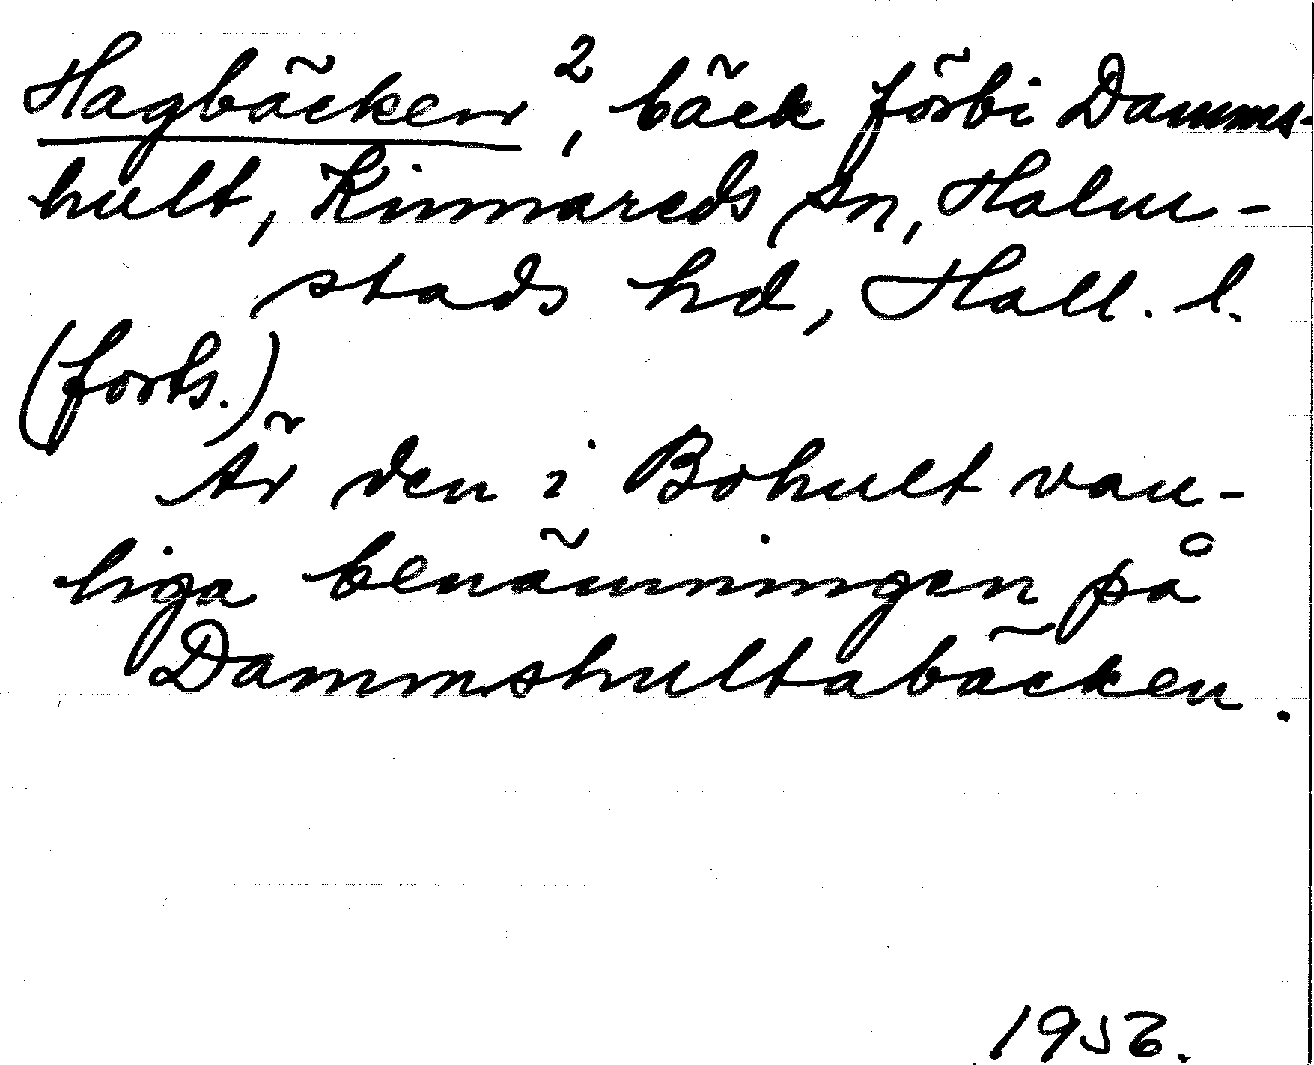 Hagbäcken ², bäck förbi Damms-
hult, Kinnareds sn, Halm-
stads hd, Hall. l.
(forts.)
Är den i Bohult van-
liga benämningen på
Dammshultabäcken.